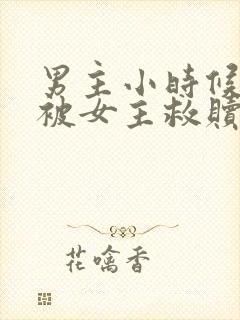 男主小時候
被女主救贖
花噙香